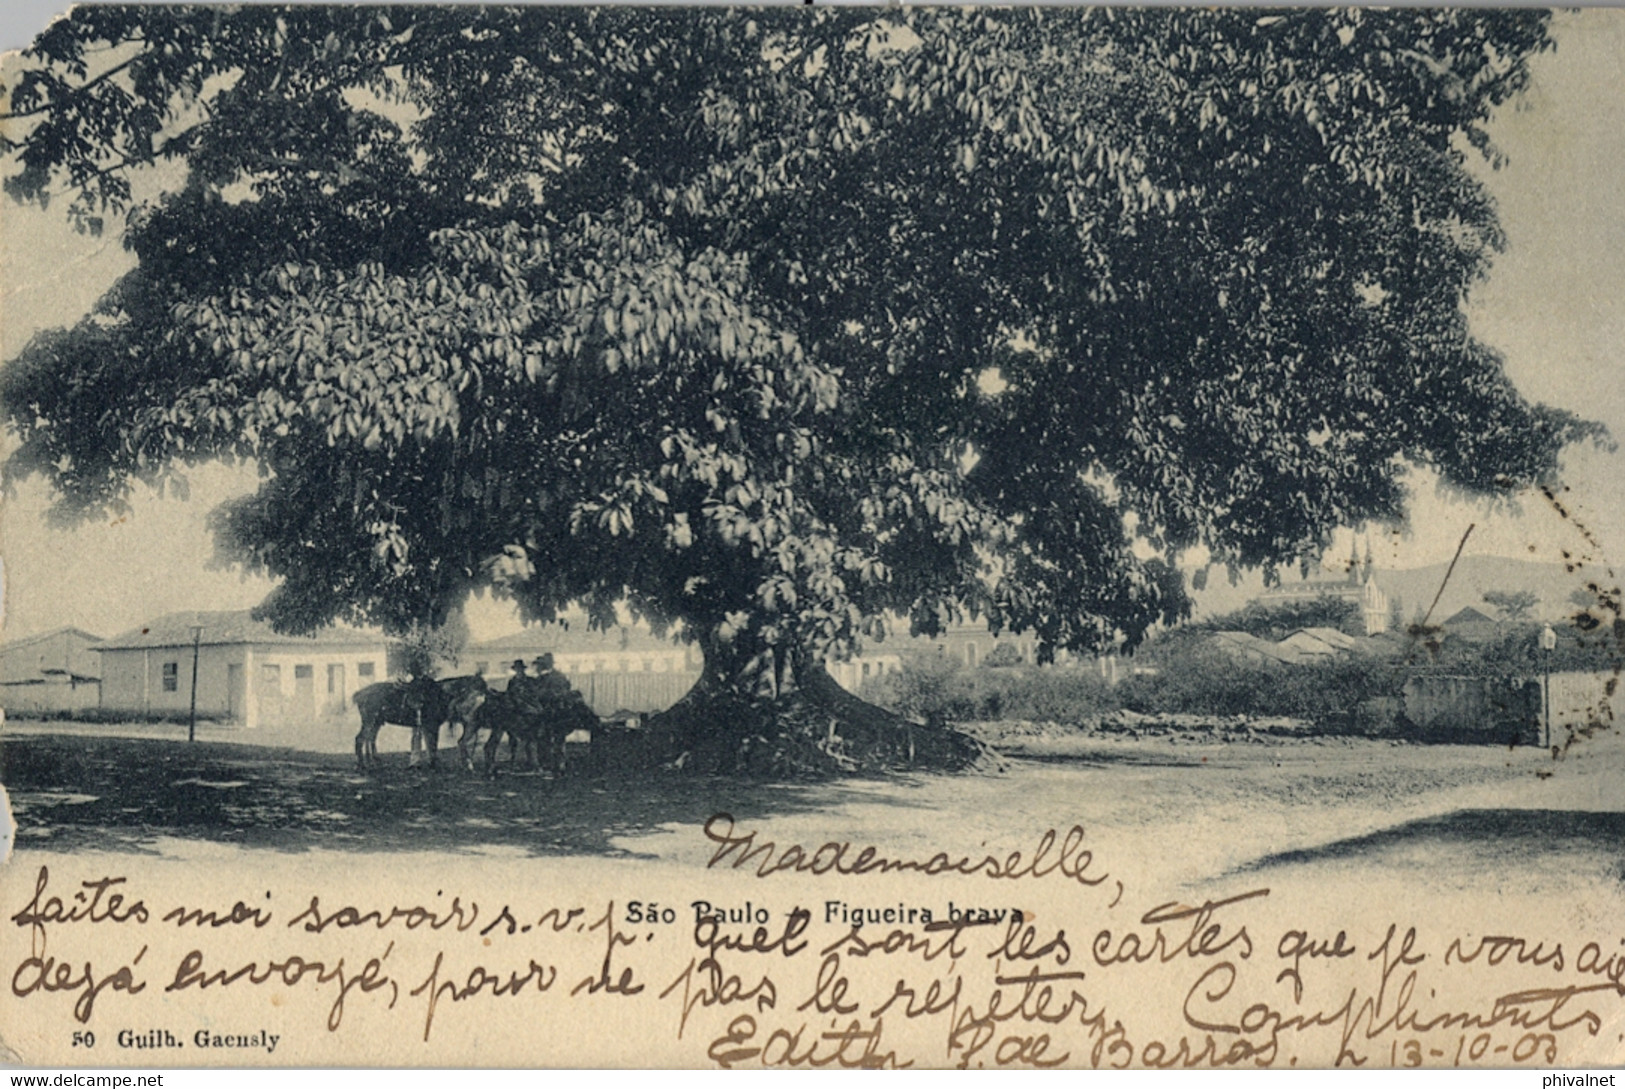 Mademoiselle,
São Paulo - Figueira brava
faîtes moi savoir s. v. p. quel sont les cartes que je vous aie
dejá envoyé, pour ne pas le répéter. Compliments.
Edith P. de Barros. 13-10-03
50 Guilh. Gaensly
www.delcampe.net
phivalnet